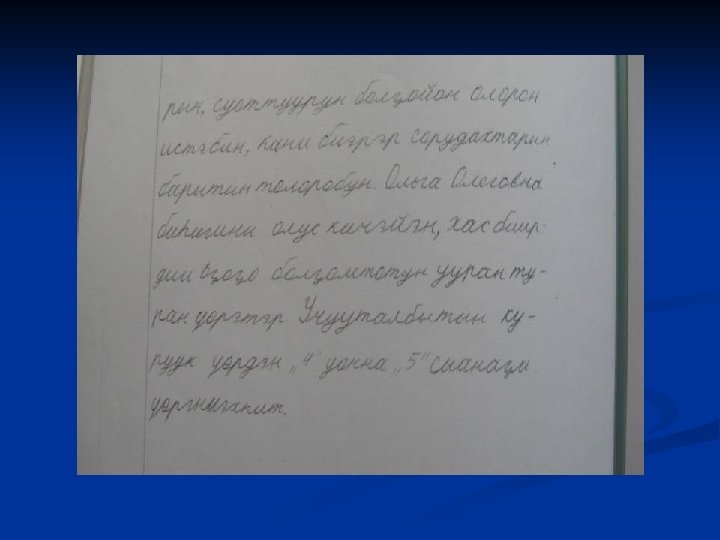 рын, суоттуурун болҕойон олорон
истэбин, кини биэрэр сорудахтарын
барытын толоробун. Ольга Олеговна
биһигини олус кичэйэн, хас биир-
дии оҕоҕо болҕомтотун ууран ту-
ран үөрэтэр. Учууталбытын кү-
рүүк үөрдэн „4" уонна „5" сыанаҕа
үөрэниэхпит.